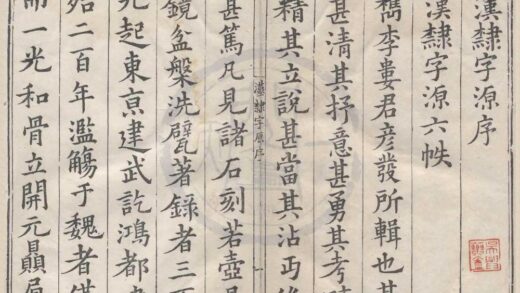 漢隸字源序
漢隸字源六帙
檇李婁君彥發所輯也其
甚清其抒意甚勇其考
精其立說甚當其沾丐後
漢隸字原序
甚篤凡見諸石刻若壺
鏡盆槃洗甓著錄者三
起東亰建武訖鴻都
二百年濫觴于魏者
而一光和骨立開元贔